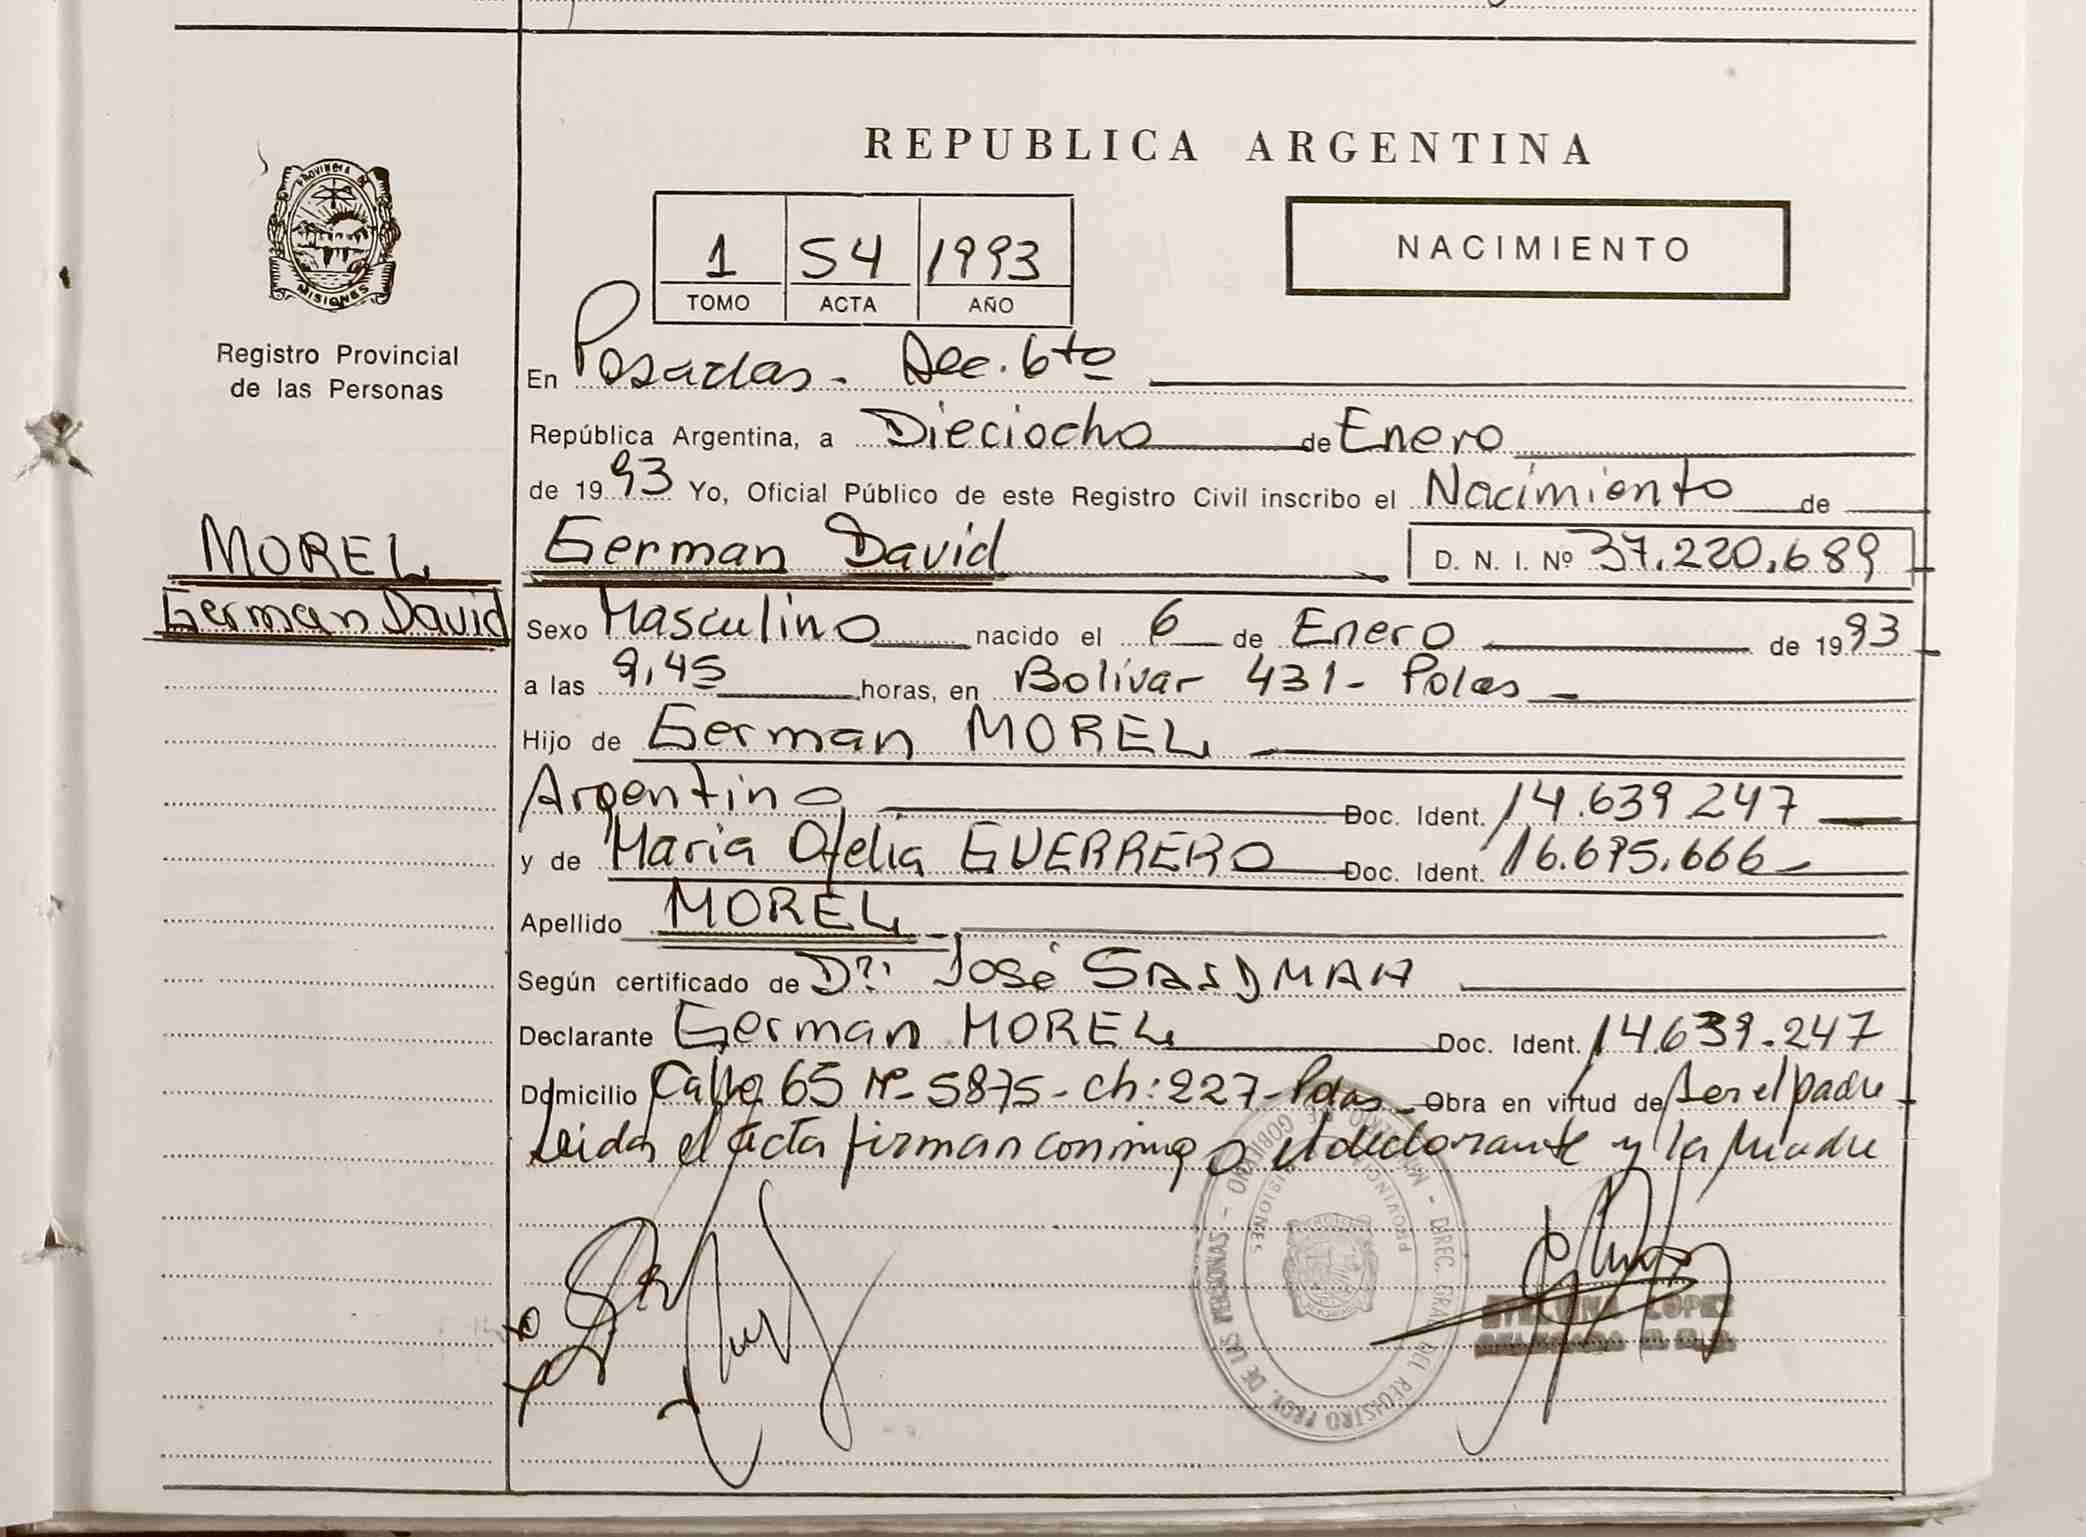 REPUBLICA ARGENTINA
PROVINCIA DE
MISIONES
Registro Provincial
de las Personas
NACIMIENTO
1 54 1993
TOMO ACTA AÑO
En Posadas - Sec. 6to
República Argentina, a Dieciocho de Enero
de 1993 Yo, Oficial Público de este Registro Civil inscribo el Nacimiento de
MOREL
German David
German David D. N. I. Nº 37.220.689
Sexo Masculino nacido el 6 de Enero de 1993
a las 9,45 horas, en Bolivar 431 - Pdas
Hijo de German MOREL
Argentino Doc. Ident. 14.639.247
y de Maria Ofelia GUERRERO Doc. Ident. 16.695.666
Apellido MOREL
Según certificado de Dr. José
Declarante German MOREL Doc. Ident. 14.639.247
Domicilio Calle 65 Nº 5875 - Ch: 227 - Pdas - Obra en virtud de Ser el padre
Leida el acta firman conmigo el declarante y la Madre
DIREC. GRAL. DEL REGISTRO PROV. DE LAS PERSONAS - GOBIERNO
PROVINCIA MISIONES
LOPEZ